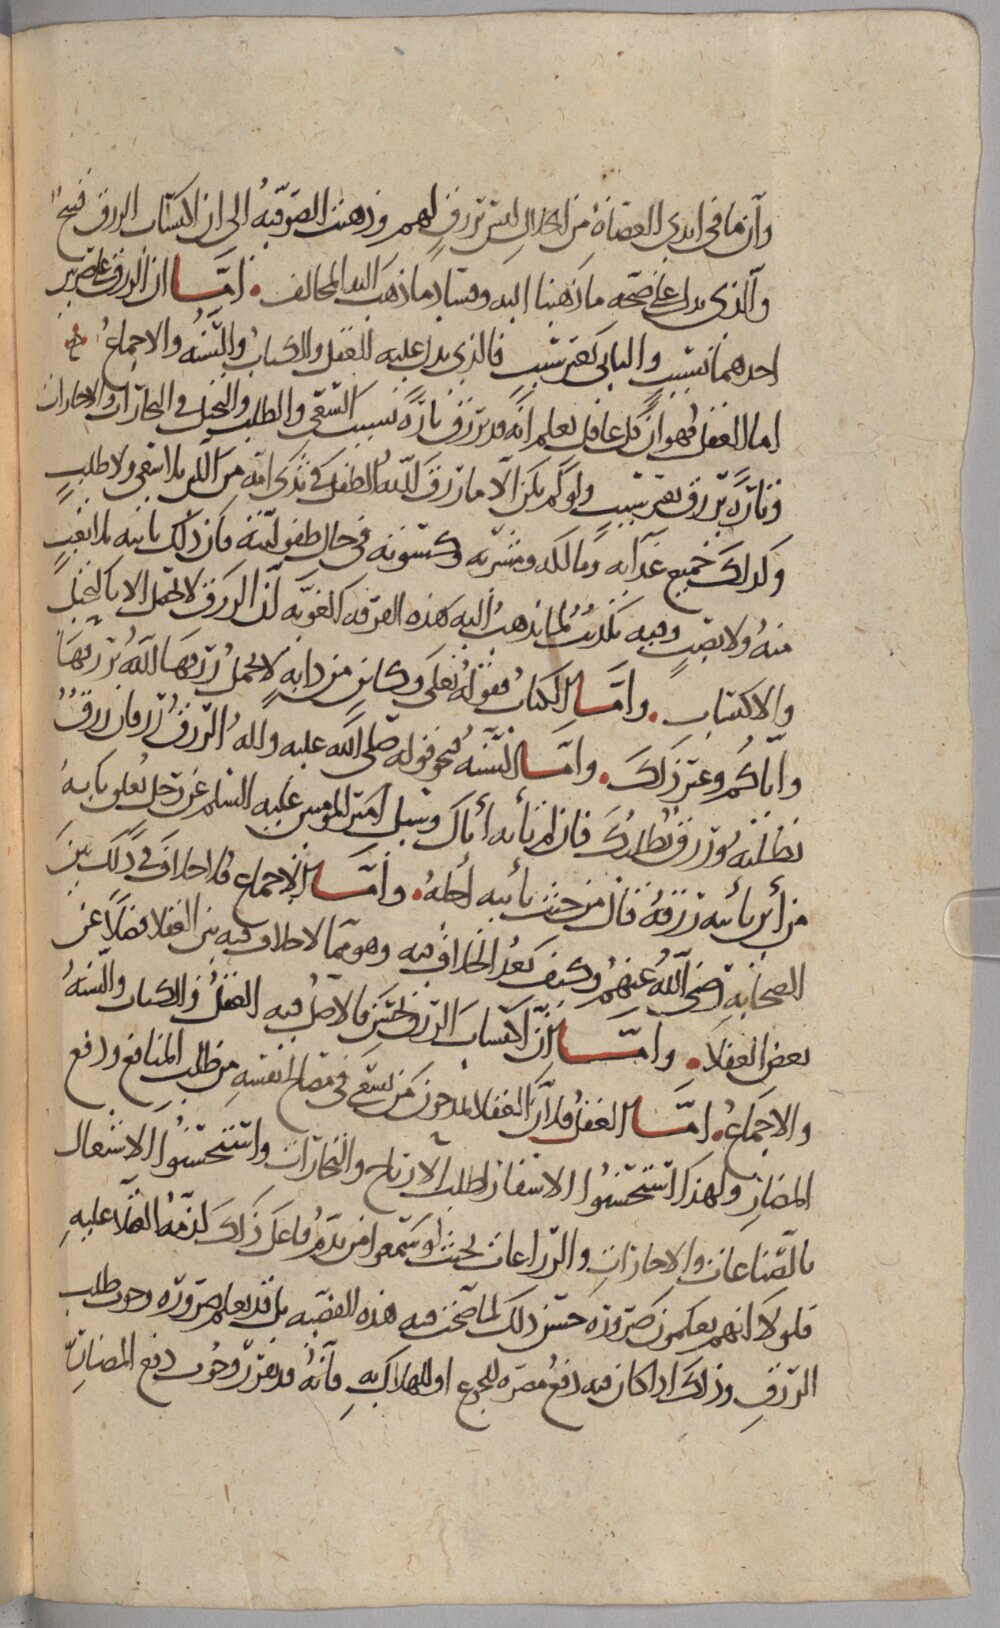 وأن ما في ايدي العصاة من الحلال ليس برزق لهم وذهبت الصوفية الى ان اكتساب الرزق قبيح
والذي يدل على صحة ما ذهبنا اليه وفساد ما ذهب اليه المخالف . امّا ان الرزق على ضربين
احدهما بسبب والثاني بغير سبب فالذي يدل عليه العقل والكتاب والسّنّه والاجماع
اما العقل فهو ان كل عاقل يعلم انّه قد يرزق تارة بسبب السّعي والطلب والتحيل في التجارات والاجارات
وتارة يرزق بغير سبب ولو لم يكن الّا ما رزق اللّه الطفل في ثدي امّه من اللبن بلا سعي ولا طلب
وكذلك جميع غدآئه ومأكله ومشربه وكسوته في حال طفوليته فان ذلك يأتيه بلا تعب
منه ولا نصب وفيه تكذيب لما يذهب اليه هذه الفرقه الغويه لان الرزق لا يحصل الا بالتحيل
والاكتساب . وامّا الكتاب فقوله تعلى وكاين من دابة لا تحمل رزقها اللّه يرزقها
واياكم وغير ذلك . وامّا السّنّه فنحو قوله صلى اللّه عليه واله الرّزق رزقان رزق
تطلبه ورزق يطلبك فان لم تأته أتاك وسيل امير المومنين عليه السلم عن رجل يغلق بابه
من أين يأتيه رزقه قال من حيث يأتيه أجله . وامّا الاجماع فلا خلاف في ذلك بين
الصحابة رضي اللّه عنهم وكيف يعد الخلاف فيه وهو مما لا خلاف فيه بين العقلا فضلاً عن
بعض العقلا . وامّا ان اكتساب الرزق يحسن فالاصل فيه العقل والكتاب والسّنّه
والاجماع . امّا العقل فلان العقلا يمدحون من يسعى في مصالح نفسه من طلب المنافع ودفع
المضار ولهذا استحسنوا الاسفار لطلب الارباح والتجارات واستحسنوا الاشتغال
بالصّناعات والاجارات والزراعات بحيث لو سمعوا من يذم فاعل ذلك لذمه العقلا عليه
فلولا انهم يعلمون ضرورة حسن ذلك لما صحّت فيه هذه القضية بل قد يعلم ضرورة وجوب طلب
الرزق وذلك اذا كان فيه دفع مضرة للجوع او الهلاك به فانّه قد تقرر وجوب دفع المضار